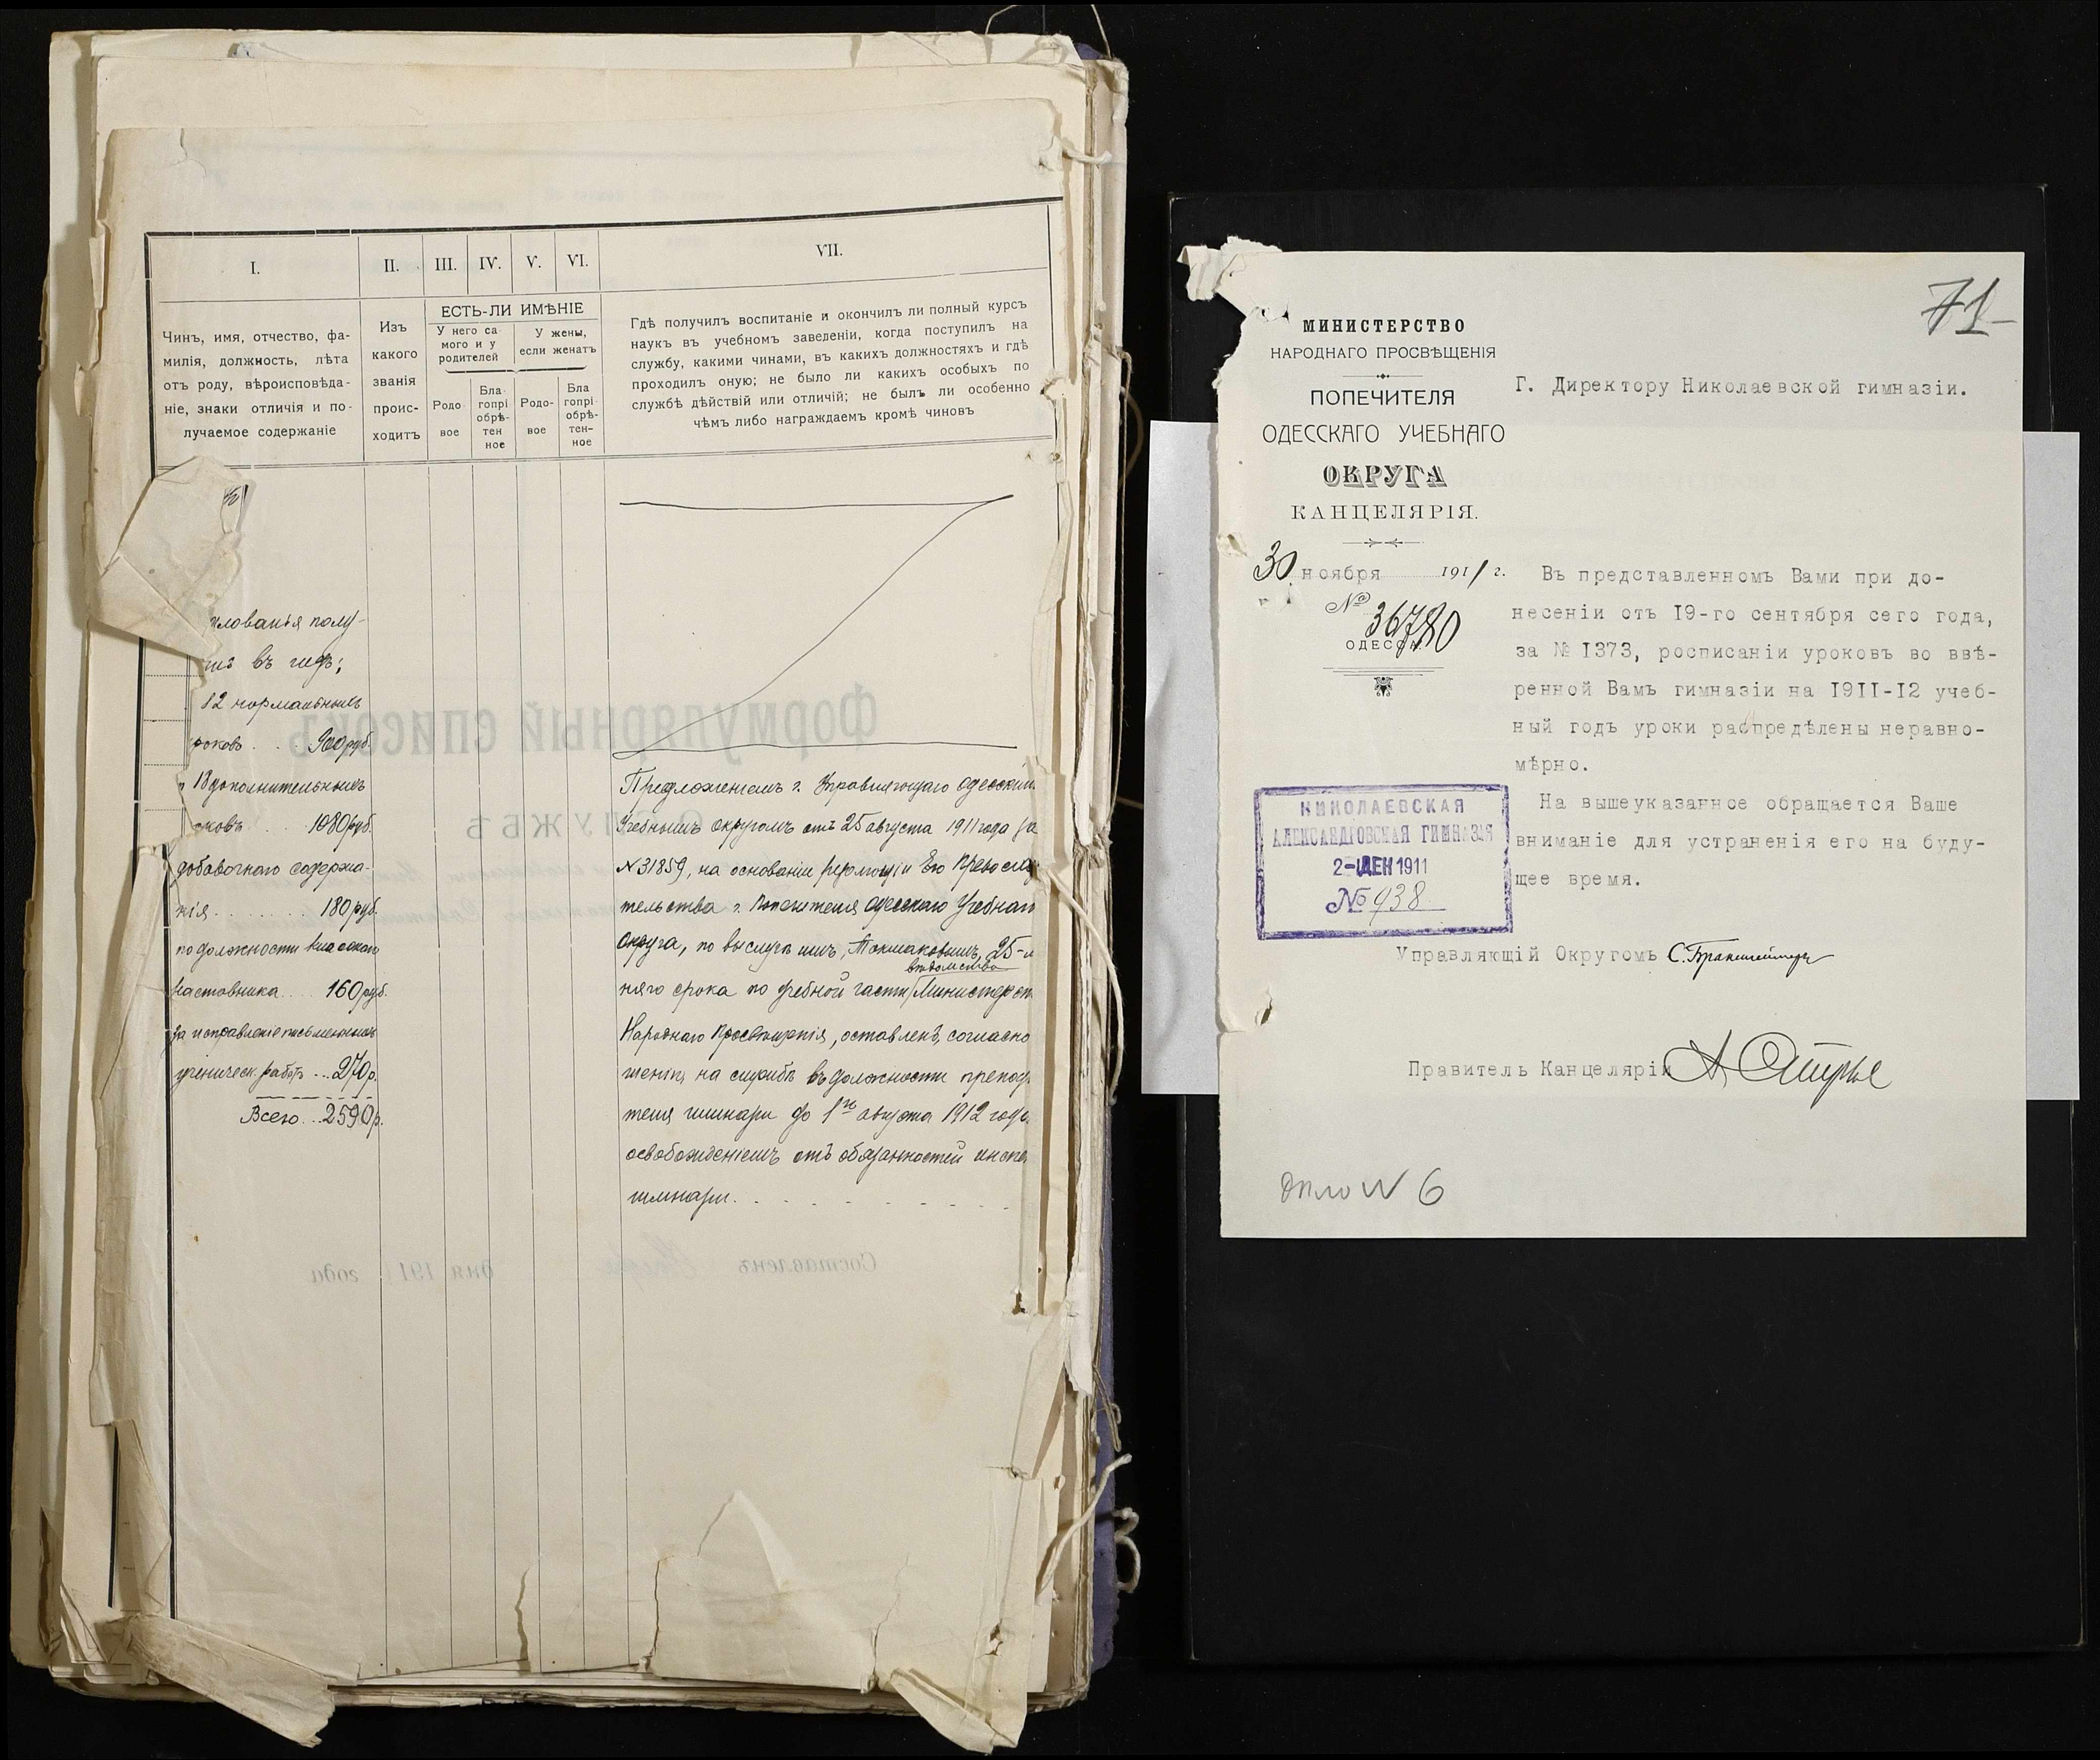 I.
II.
III.
IV.
V.
VI.
VII.
Чинъ, имя, отчество, фа-
милія, должность, лѣта
отъ роду, вѣроисповѣда-
ніе, знаки отличія и по-
лучаемое содержаніе
Изъ
какого
званія
проис-
ходитъ
ЕСТЬ-ЛИ ИМѢНІЕ
У него са
мого и у
родителей
У жены,
если женатъ
Родо
вое
Бла
гопрі
обрѣ-
тен
ное
Родо-
вое
Бла
гопрі
обрѣ-
тен-
ное
Гдѣ получилъ воспитаніе и окончилъ ли полный курсъ
наукъ въ учебномъ заведеніи, когда поступилъ на
службу, какими чинами, въ какихъ должностяхъ и гдѣ
проходилъ оную; не было ли какихъ особыхъ по
службѣ дѣйствій или отличій; не былъ ли особенно
чѣмъ либо награждаемъ кромѣ чиновъ
лованья полу-
въ годъ;
12 нормальныхъ
роковъ . . . 900 руб.
18 дополнительныхъ
оковъ . . . 1080 руб.
добавочного содержа-
нія . . . . . . . 180 руб.
по должности класснаго
наставника . . . 160 руб.
за исправленіе письменныхъ
ученическ. работъ . . . 270 р.
Всего . . . 2590 р.
Предложеніемъ г. Управляющаго Одесскимъ
Учебнымъ Округомъ отъ 25 августа 1911 года за
№ 31859, на основаніи резолюціи Его Превосхо
тельства г. Попечителя Одесскаго Учебнаго
Округа, по выслугѣ имъ, Токмаковымъ, 25-л
вѣдомства
няго срока по учебной части Министерст
Народнаго Просвѣщенія, оставленъ, согласно
шенію, на службѣ въ должности препод
теля гимназіи до 1го августа 1912 года
освобожденіемъ отъ обязанностей инспе
гимназіи.
Формулярный списокъ
СЛУЖБѢ
Составленъ
дня 191
года
71
МИНИСТЕРСТВО
НАРОДНАГО ПРОСВѢЩЕНІЯ
ПОПЕЧИТЕЛЯ
ОДЕССКАГО УЧЕБНАГО
ОКРУГА
КАНЦЕЛЯРІЯ.
30 ноября 1911 г.
№ 36780
ОДЕССА.
Г. Директору Николаевской гимназіи.
Въ представленномъ Вами при до-
несеніи отъ 19-го сентября сего года,
за № 1373, росписаніи уроковъ во ввѣ-
ренной Вамъ гимназіи на 1911-12 учеб-
ный годъ уроки распредѣлены неравно-
мѣрно.
На вышеуказанное обращается Ваше
вниманіе для устраненія его на буду-
щее время.
НИКОЛАЕВСКАЯ
АЛЕКСАНДРОВСКАЯ ГИМНАЗІЯ
2-ДЕН 1911
№ 938
Управляющій Округомъ
Правитель Канцеляріи
дѣло № 6